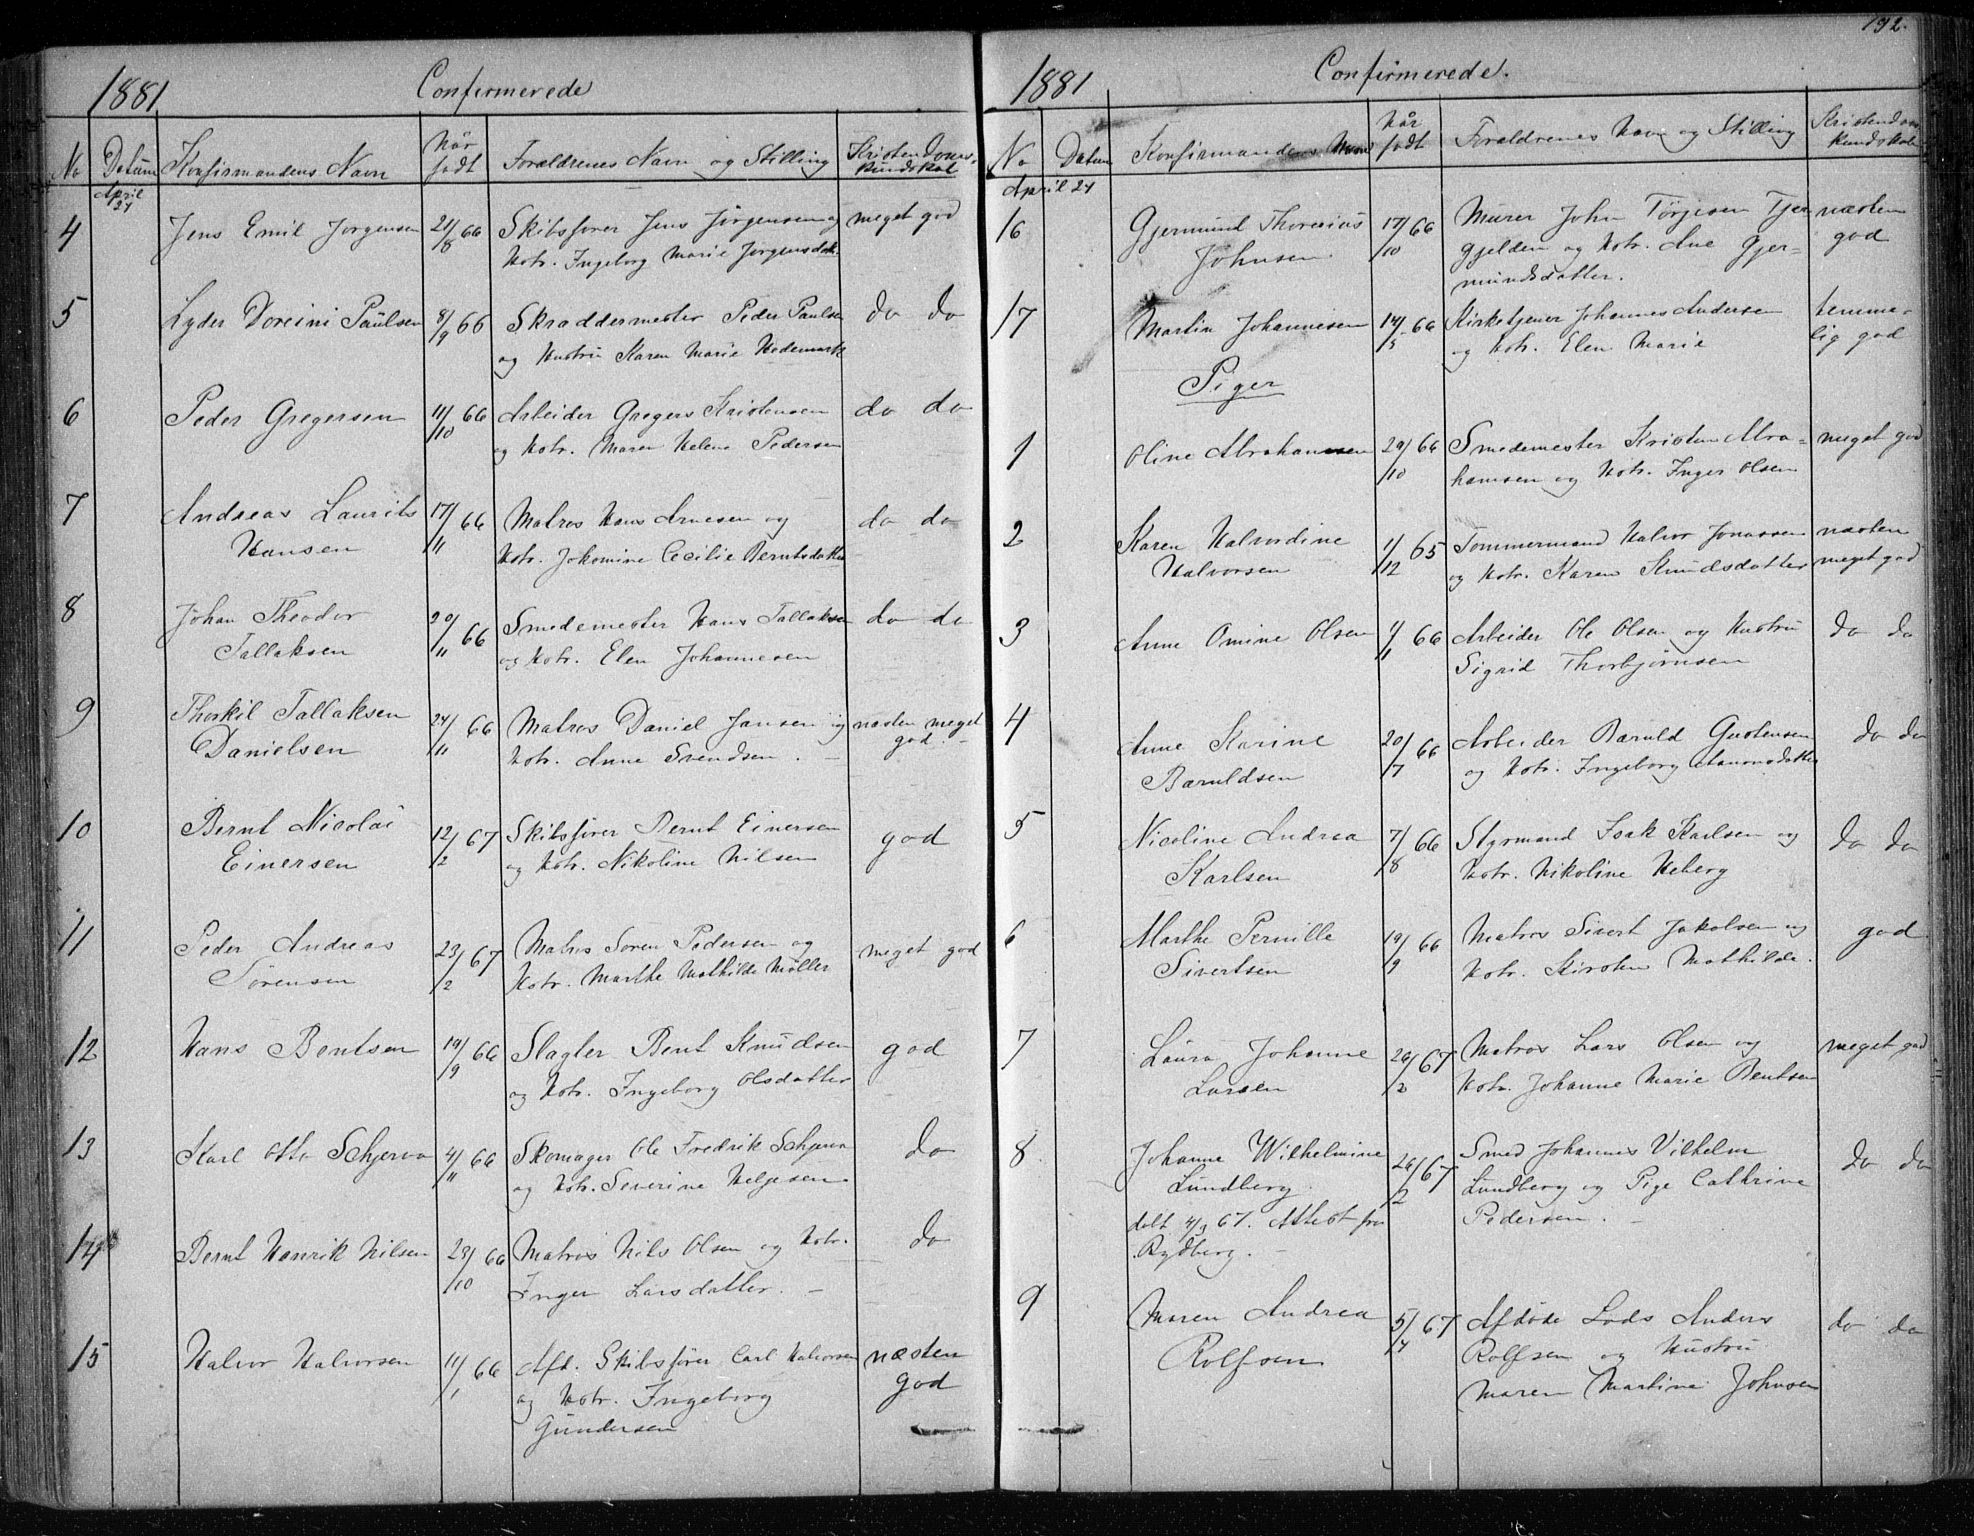 1881 Confirmerede
No Datum Konfirmandens Navn Når født Forældrenes Navn og Stilling Kristendoms-
kundskab
April
24
4 Jens Emil Jorgensen 21/8 66 Skibsfører Jens Jørgensen og meget god
Hstr. Ingeborg Marie Jorgensdatt.
5 Lyder Doreini Paulsen 8/9 66 Skræddermester Peder Paulsen do do
og Hustru Karen Marie Hedemark
6 Peder Gregersen 11/10 66 Arbeider Gregers Kristensen do do
og Hstr. Maren Helene Pedersen
7 Andreas Laurits 17/11 66 Matros Hans Arnesen og do do
Hansen Hstr. Jokomine Cecilie Berntsdatter
8 Johan Theodor 20/11 66 Smedemester Hans Tallaksen do do
Tallaksen og Hstr. Elen Johannesen
9 Thorkil Tallaksen 24/11 66 Matros Daniel Jansen og næsten meget
Danielsen Hstr. Anne Svendsen. god.
10 Bernt Nicolai 12/2 67 Skibsfører Bernt Einersen god
Einersen og Hstr. Nikoline Nilsen
11 Peder Andreas 23/2 67 Matros Soren Pedersen og meget god
Sørensen Hstr. Marthe Mathilde Møller
12 Hans Bentsen 19/9 66 Slagter Bent Knudsen god
og Hstr. Ingeborg Olsdatter
13 Karl Otto Schjerva 4/11 66 Skomager Ole Fredrik Schjerva do
og Hstr. Severine Helgesen
14 Bernt Henrik Nilsen 23/10 66 Matros Nils Olsen og Hstr. do
Inger Larsdatter.
15 Halvor Halvorsen 11/1 66 Afd. Skibsfører Carl Halvorsen næsten
og Hstr. Ingeborg god
Gundersen
192.
1881 Confirmerede.
No Datum Konfirmandens Navn Når født Forældrenes Navn og Stilling Kristendoms
kundskab
April 24
16 Gjermund Thorenius 17/10 66 Murer John Tørjesen Tjer- næsten
Johnsen gjelden og Hstr. Ane Gjer- god
mundsdatter.
17 Martin Johannesen 14/5 66 Kirketjener Johannes Andersen temme-
og Hstr. Elen Marie lig god
Piger
1 Oline Abrahamsen 29/10 66 Smedemester Kristen Abra- meget god
hamsen og Hstr. Inger Olsen
2 Karen Halvordine 1/12 65 Tommermand Halvor Jonassen næsten
Halvorsen og Hstr. Karen Knudsdatter meget god
3 Anne Omine Olsen 1/1 66 Arbeider Ole Olsen og Hustru do do
Sigrid Thorbjørnsen
4 Anne Karine 20/7 66 Arbeider Baruld Gustensen do do
Baruldsen og Hstr. Ingeborg
5 Nicoline Andrea 7/8 66 Styrmand Isak Karlsen og do do
Karlsen Hstr. Nikoline Heberg
6 Marthe Pernille 19/9 66 Matros Sivert Jakobsen og god
Sivertsen Hstr. Kirsten Mathilde.
7 Laura Johanne 26/2 67 Matros Lars Olsen og meget god
Larsen Hstr. Johanne Marie Bentsen
8 Johanne Wilhelmine 26/2 67 Smed Johannes Vilhelm do do
Lundberg. Lundberg og Pige Cathrine
døbt 4/9 67. Attest fra Pedersen.
Rydberg.
9 Maren Andrea 5/4 67 Afdøde Lods Anders do do
Rolfsen Rolfsen og Hustru
Maren Martine Johnsen